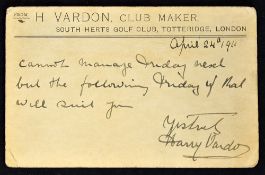 FROM H VARDON, CLUB MAKER,
SOUTH HERTS GOLF CLUB, TOTTERIDGE, LONDON
April 24th 1911
cannot manage Friday next
but the following Friday if that
will suit you
Yrs truly
Harry Vardon